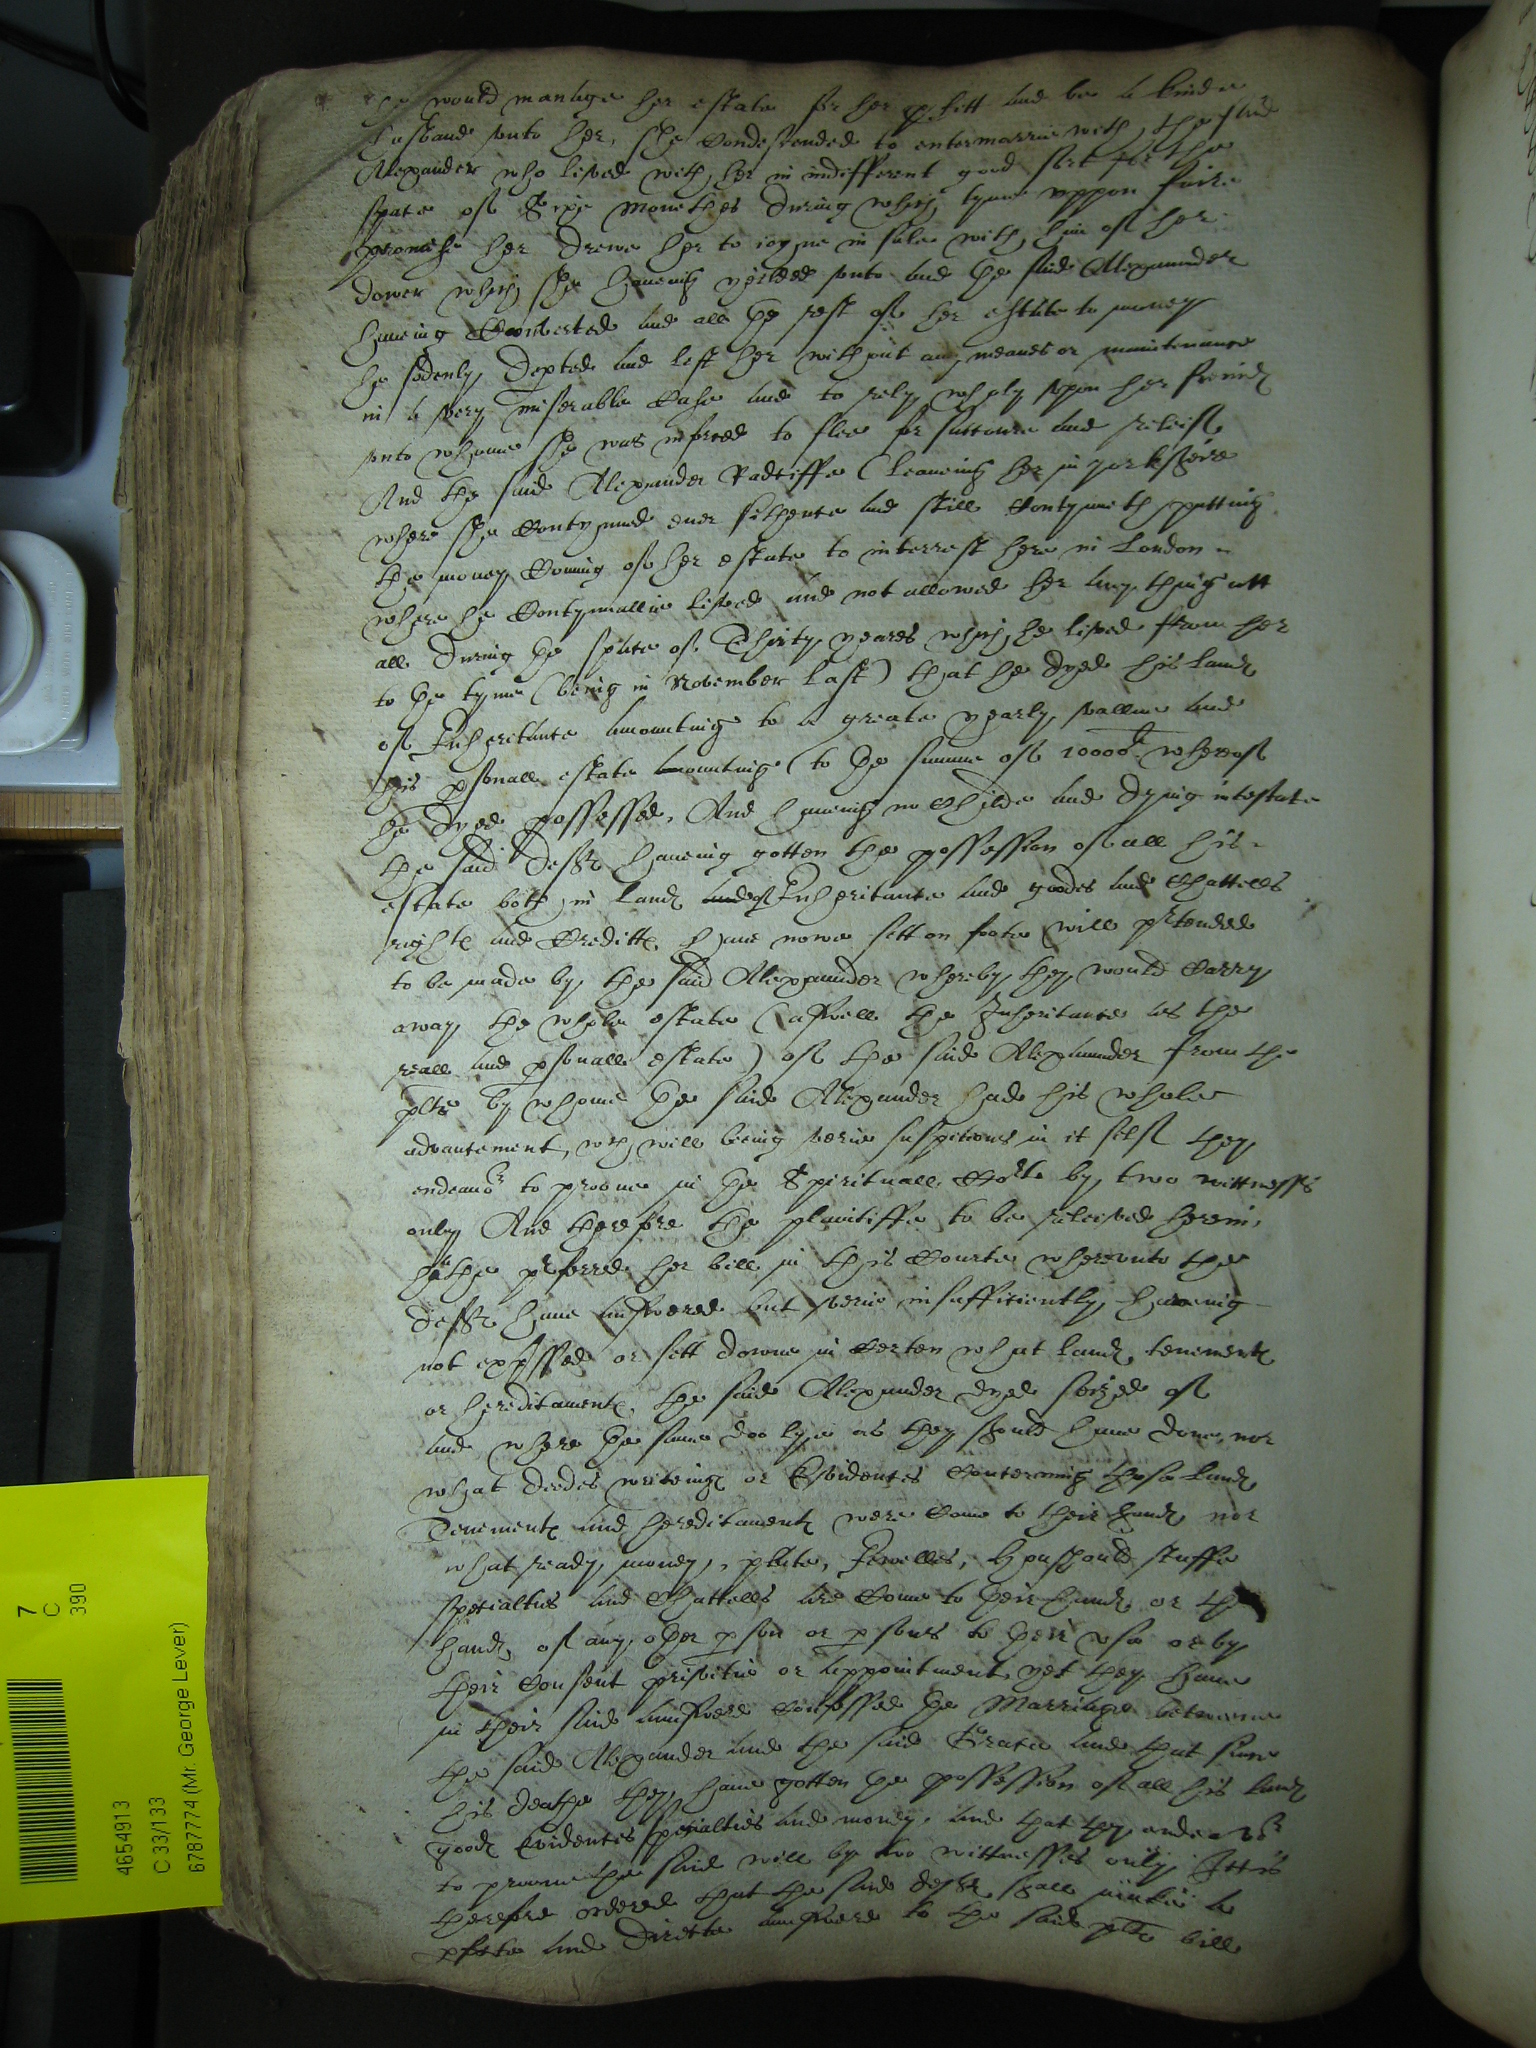 he would manage her estate for her pfitt and be a kinde
husband vnto her, she Condescended to entermarrie with, the said
Alexander who lived with her in indifferent good sort for the
space of Sixe Monethes during which tyme vppon faire
promise her drewe her to ioyne in sale with him of her
dower which she haveing yeilded vnto and the said Alexaunder
haveing Converted and all the rest of her estate to money
he sodenly depted and left her without any meanes or maintenance
in a very miserable Case and to rely wholy vpon her freinds
vnto whome she was inforced to flee for succoure and releife
And the said Alexander Radcliffe (leaveing her in yorkshire
where she Contynued ever sithence and still Contynueth putting
the money Coming of her estate to interrest here in London
where he Contynuallie lived and not allowed her any thing att
all during the space of Thirty yeares which he lived from her
to the tyme (being in November last) that he dyed his lands
of Inheritance amounting to a greate yearly vallue and
his psonall estate amounting to the summe of 10000l whereof
he dyed possessed, And haveing no Childe and dying intestate
the said deftes haveing gotten the possession of all his
estate both in lands of Inheritance and goodes and Chattells
rights and Creditts have nowe sett on foote will ptended
to be made by the said Alexaunder whereby they would Carry
away the whole estate (aswell the Inheritance as the
reall and psonall estate) of the said Alexaunder from the
plte by whome the said Alexander had his whole
advancement, wch will being verie suspitious in it self they
endeavor to proove in the Spirituall Corte by two wittnesses
only And therefore the plaintiffe to be releived herein,
hathe pferred her bill in this Courte whereunto the
deftes have answered but verie insufficiently haveing
not expssed or sett downe in Certen what lands tenements
or hereditaments the said Alexaunder dyed seized of
and where the same doo lye as they should have done, nor
what deedes writeings or Evidences Concerning those lands
Tenements and hereditaments were Come to their hands nor
what ready money, plate, Jewelles, Houshould stuffe
specialties and Chattells are Come to their hands or the
hands of any other pson or psons to their vse or by
their Consent privitie or appointment, yet they have
in their said answere Confessed the Marriage betweene
the said Alexander and the said Grace and that since
his deathe they have gotten the possession of all his lands
goods Evidences specialties and money, and that they endeavor
to proove the said will by two wittnesses only, It is
therefore ordered that the said deftes shall make a
pfecte and directe answere to the said plte bill
7
C
390
4654913
C 33/133
6787774 (Mr. George Lever)